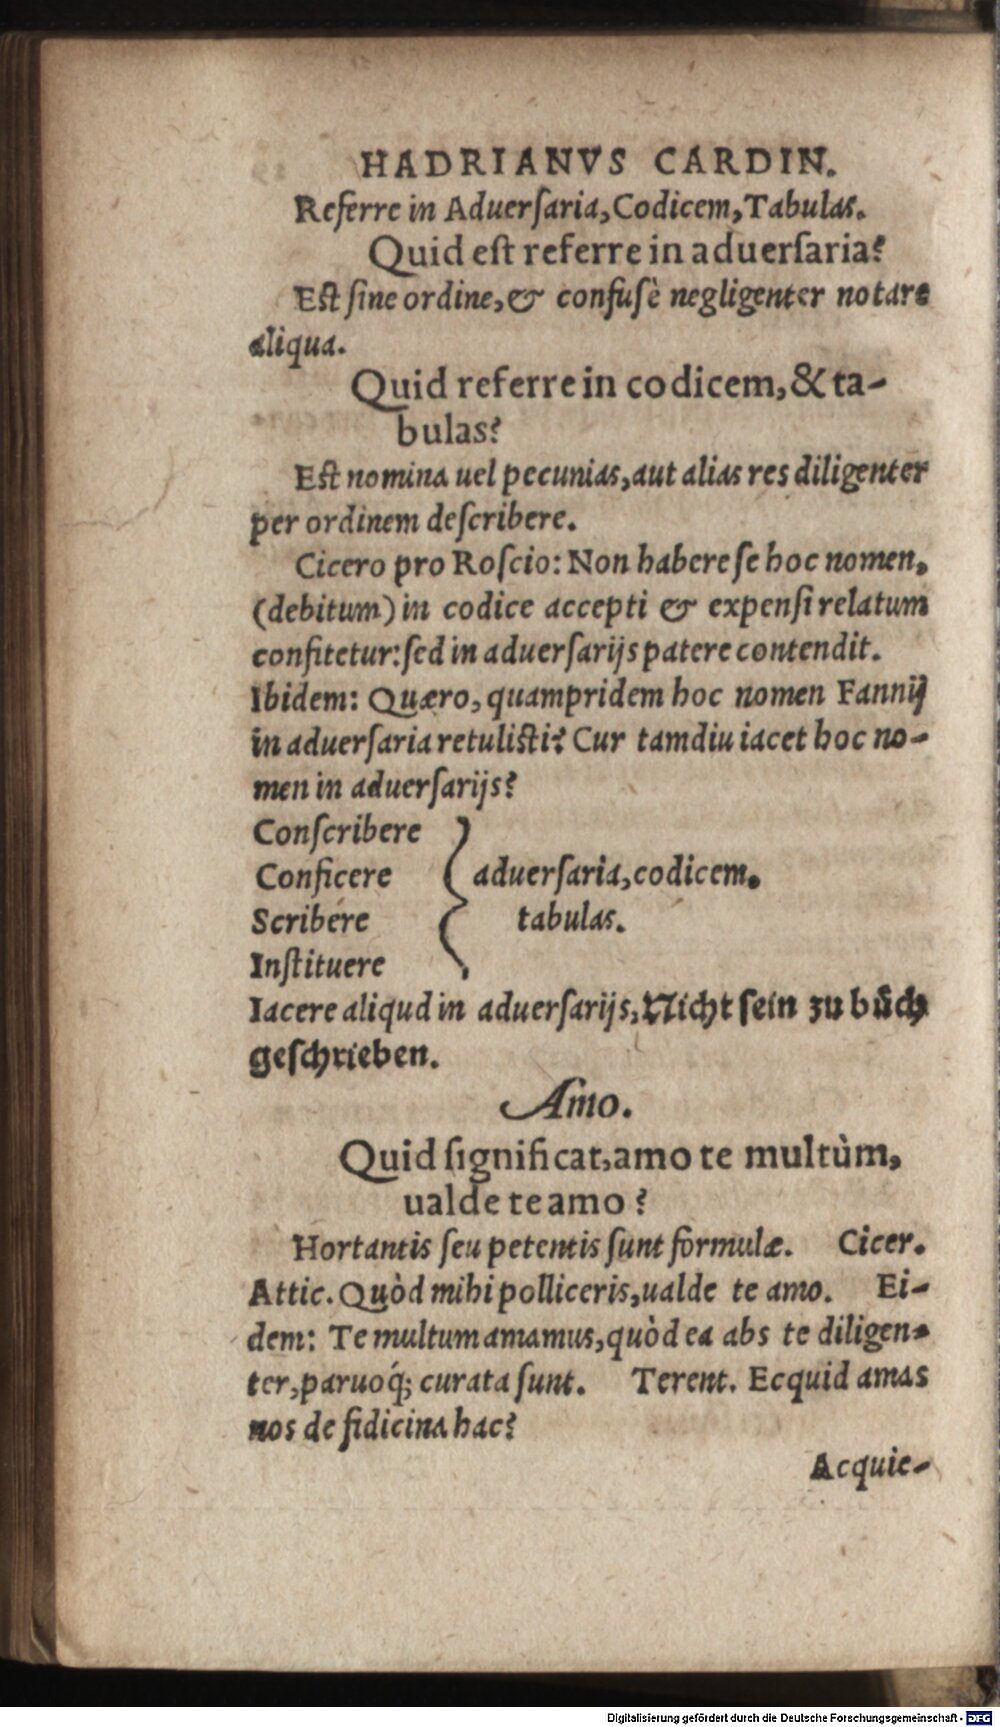 HADRIANVS CARDIN.
Referre in Aduerſaria, Codicem, Tabulas.
Quid eſt referre in aduerſaria?
Eſt ſine ordine, & confuſè negligenter notare
aliqua.
Quid referre in codicem, & ta-
bulas?
Eſt nomina uel pecunias, aut alias res diligenter
per ordinem deſcribere.
Cicero pro Roſcio: Non habere ſe hoc nomen,
(debitum) in codice accepti & expenſi relatum
confitetur: ſed in aduerſarijs patere contendit.
Ibidem: Quæro, quampridem hoc nomen Fannij
in aduerſaria retuliſti? Cur tamdiu iacet hoc no-
men in aduerſarijs?
Conſcribere
Conficere aduerſaria, codicem.
Scribere tabulas.
Inſtituere
Iacere aliqud in aduerſarijs, Nicht ſein zu bůch
geſchrieben.
Amo.
Quid ſignificat, amo te multùm,
ualde te amo?
Hortantis ſeu petentis ſunt formulæ. Cicer.
Attic. Quòd mihi polliceris, ualde te amo. Ei-
dem: Te multum amamus, quòd ea abs te diligen-
ter, paruoq́; curata ſunt. Terent. Ecquid amas
nos de fidicina hac?
Acquie-
Digitalisierung gefördert durch die Deutsche Forschungsgemeinschaft - DFG